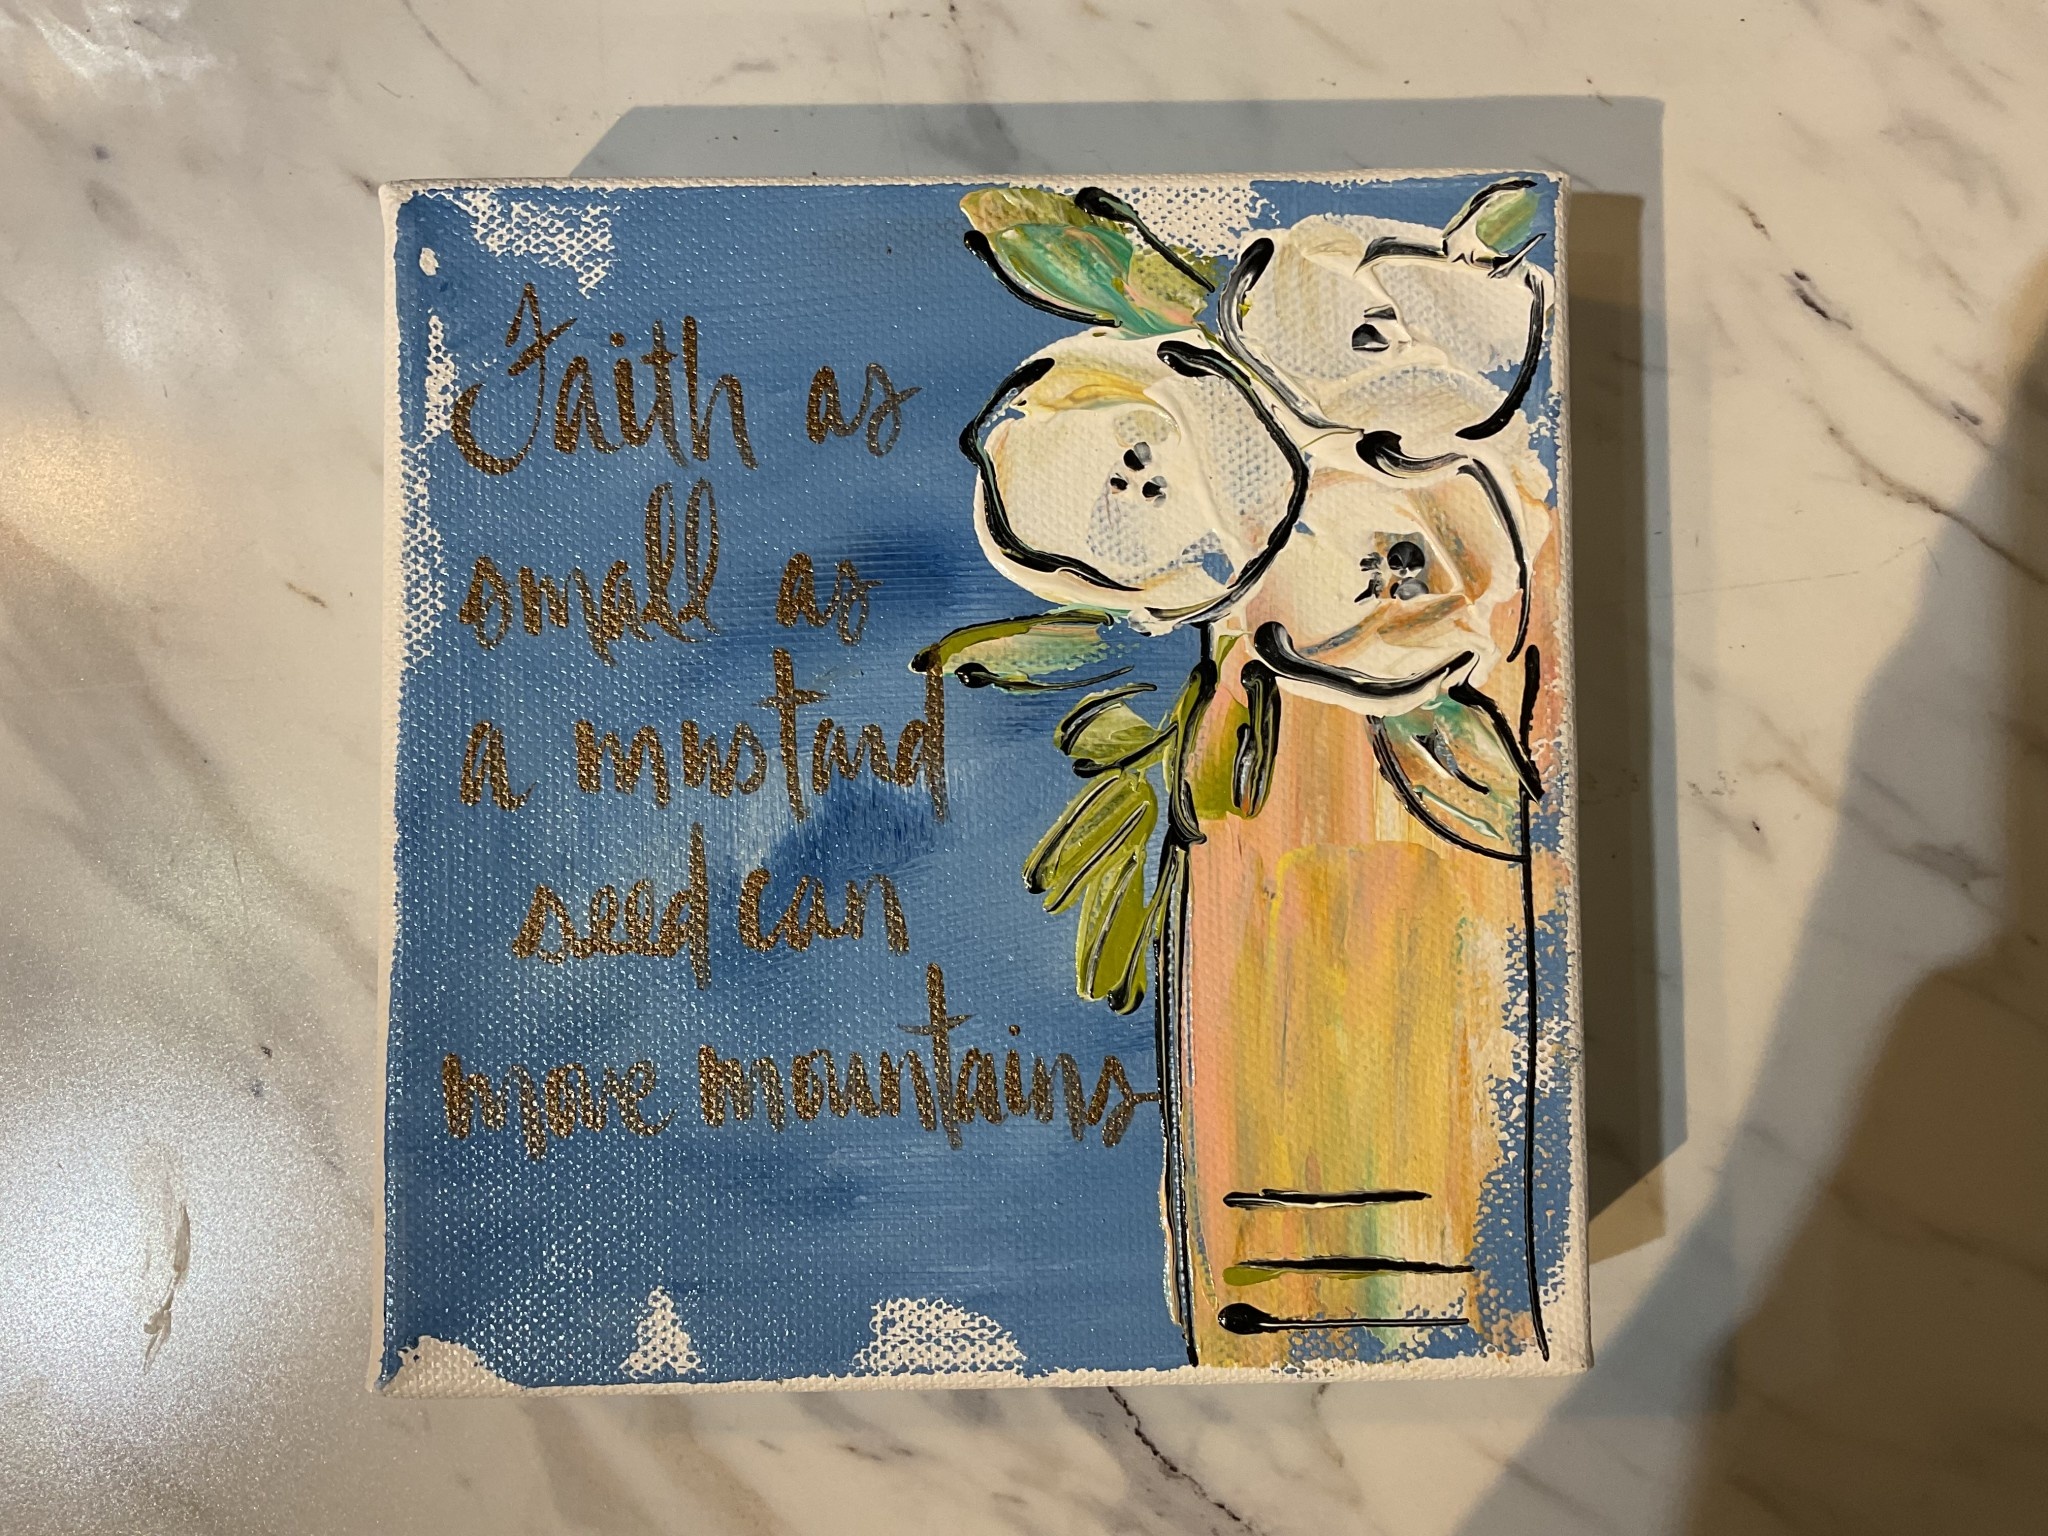 Faith as
small as
a mustard
seed can
move mountains